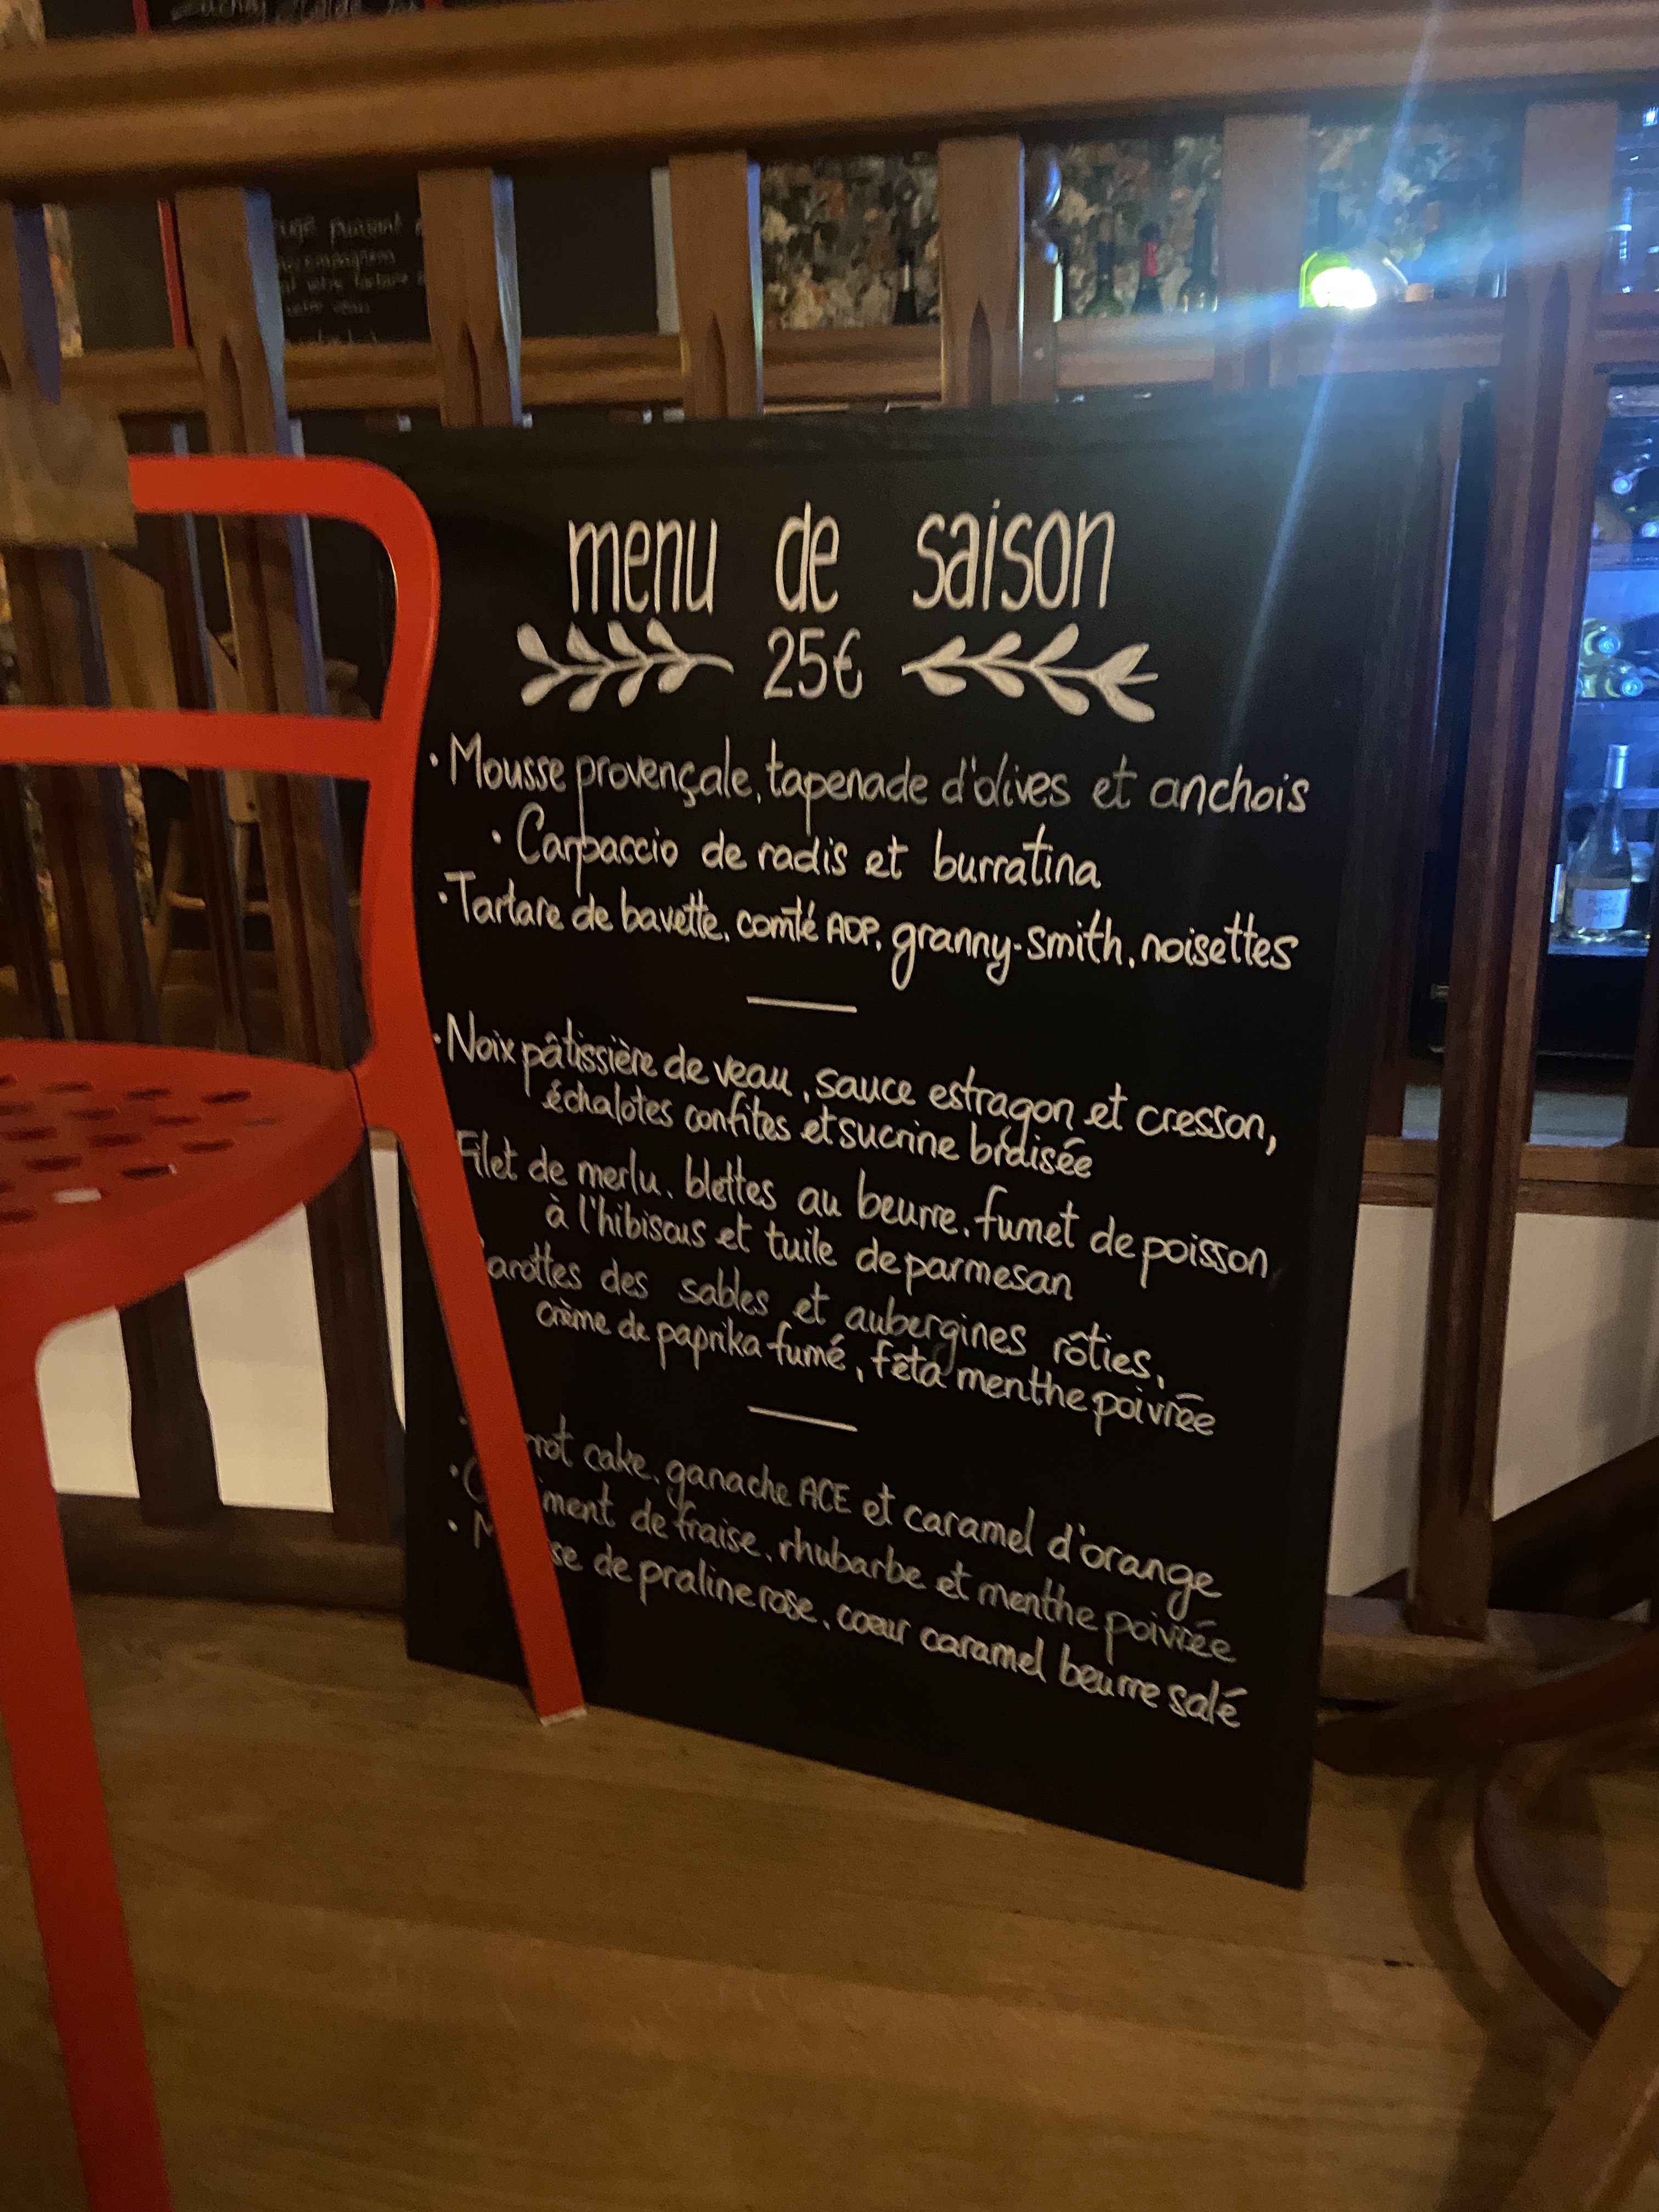 puissant
menu de saison
25€
· Mousse provençale, tapenade d'olives et anchois
· Carpaccio de radis et burratina
· Tartare de bavette, comté AOP, granny-smith, noisettes
· Noix pâtissière de veau, sauce estragon et cresson,
échalotes confites et sucrine braisée
Filet de merlu, blettes au beurre, fumet de poisson
à l'hibiscus et tuile de parmesan
arottes des sables et aubergines rôties,
crème de paprika fumé, fêta menthe poivrée
rot cake, ganache ACE et caramel d'orange
· C iment de fraise, rhubarbe et menthe poivrée
· M se de praline rose, cœur caramel beurre salé